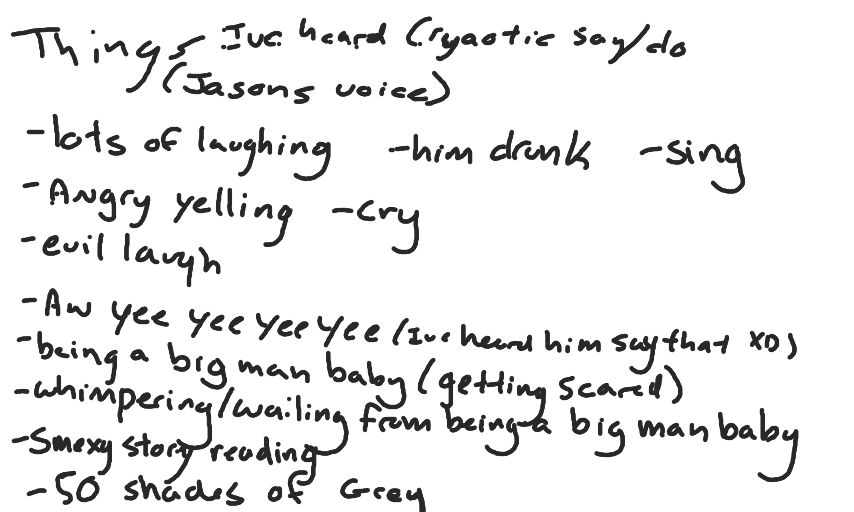 Things Ive heard Cryaotic say/do
(Jasons voice)
-lots of laughing -him drunk -sing
-Angry yelling -cry
-evil laugh
-Aw yee yee yee yee (Ive heard him say that XD)
-being a big man baby (getting scared)
-whimpering/wailing from being a big man baby
-Smexy story reading
-50 shades of Grey